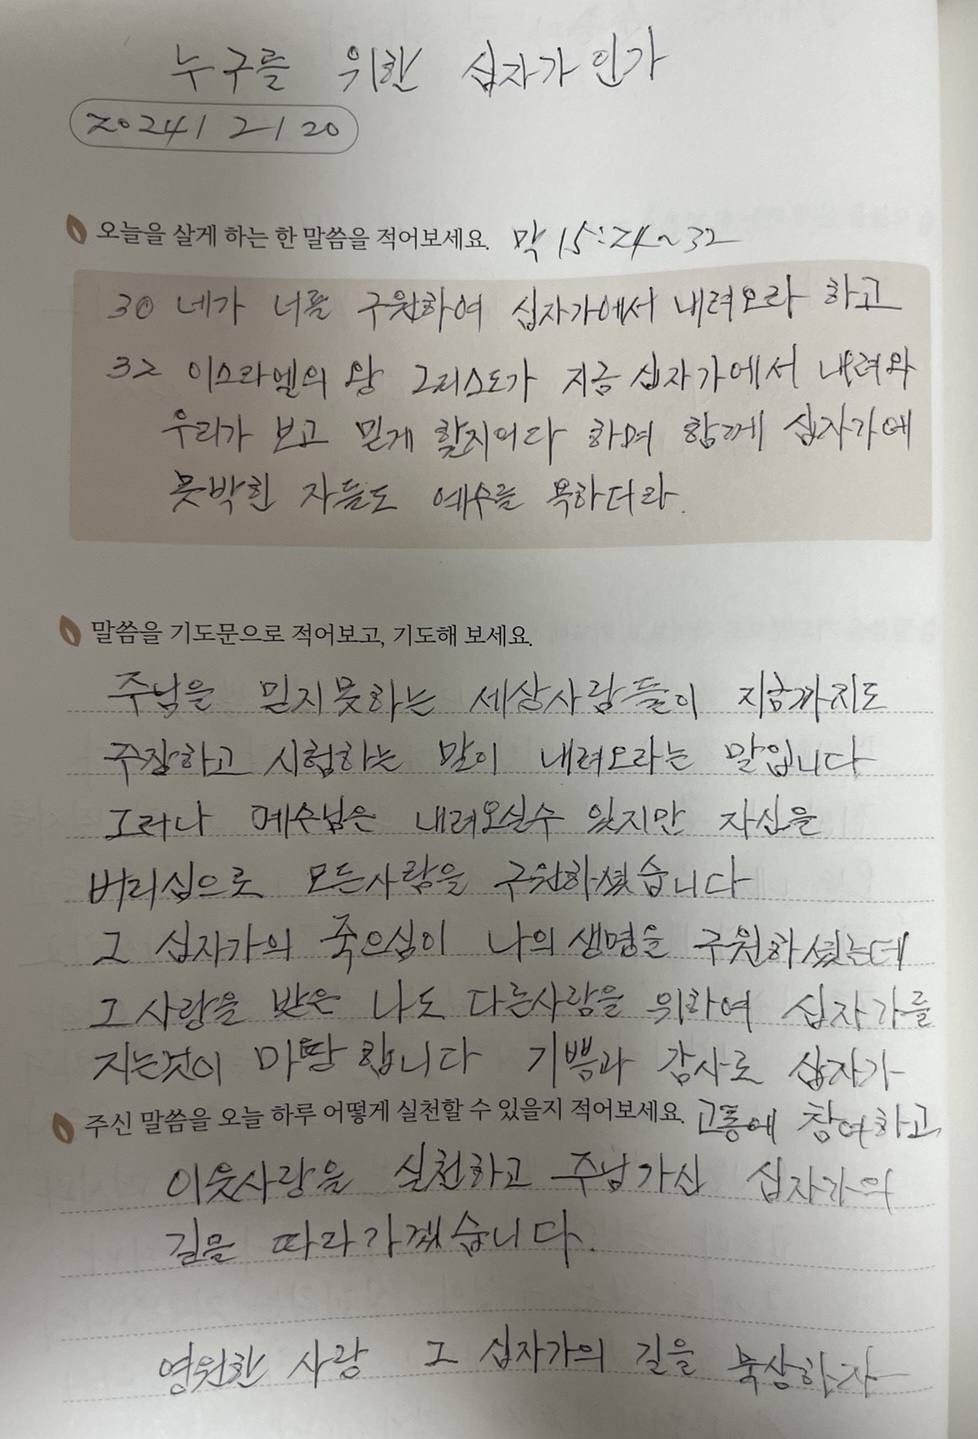 누구를 위한 십자가 인가
2024 / 2 - / 20
오늘을 살게 하는 한 말씀을 적어보세요. 막 15:24~32
30 네가 너를 구원하여 십자가에서 내려오라 하고
32 이스라엘의 왕 그리스도가 지금 십자가에서 내려와
우리가 보고 믿게 할지어다 하며 함께 십자가에
못박힌 자들도 예수를 욕하더라.
말씀을 기도문으로 적어보고, 기도해 보세요.
주님을 믿지못하는 세상사람들이 지금까지도
주장하고 시험하는 말이 내려오라는 말입니다
그러나 예수님은 내려오실수 있지만 자신을
버리심으로 모든사람을 구원하셨습니다
그 십자가의 죽으심이 나의 생명을 구원하셨는데
그 사랑을 받은 나도 다른사람을 위하여 십자가를
지는것이 마땅 합니다 기쁨과 감사로 십자가
주신 말씀을 오늘 하루 어떻게 실천할 수 있을지 적어보세요. 고통에 참여하고
이웃사랑을 실천하고 주님가신 십자가의
길을 따라가겠습니다.
영원한 사랑 그 십자가의 길을 묵상하자